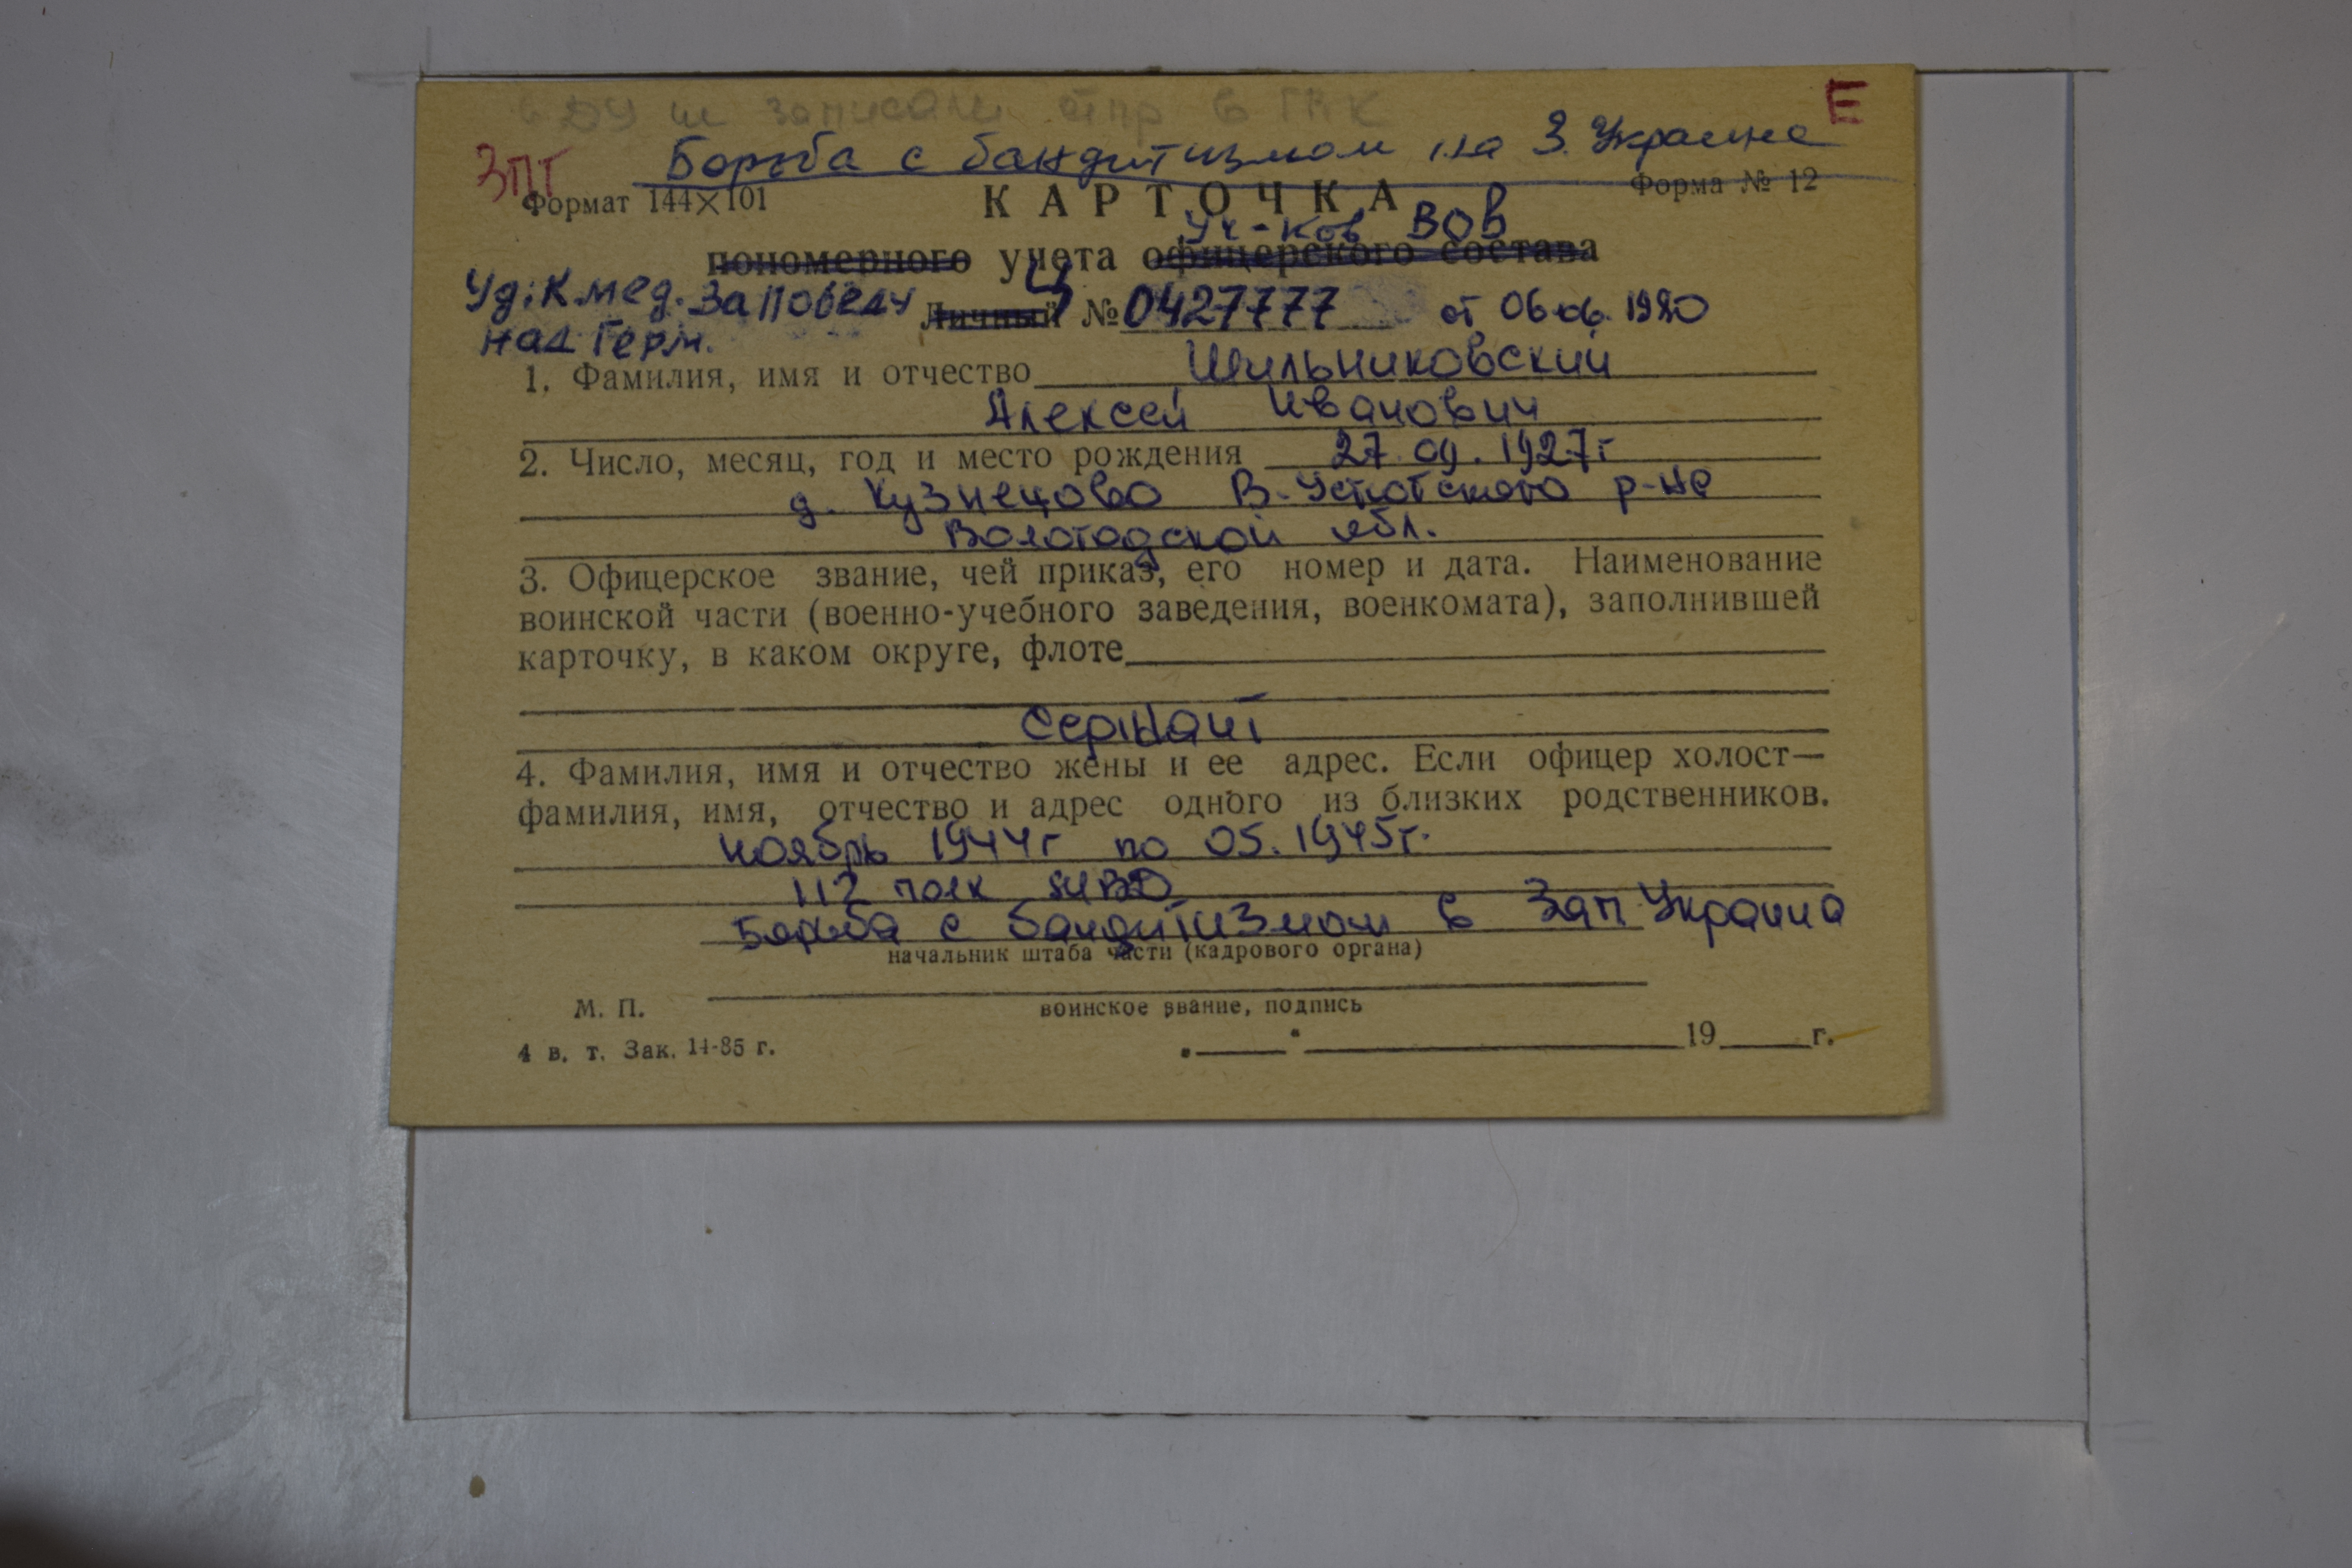 записали отпр в
Е
Борьба с бандитизмом на З. Украине
ЗПГ
Формат 144×101
Форма № 12
КАРТОЧКА
Уч-ков ВОВ
пономерного учета офицерского состава
Уд. К мед. За победу
над Герм.
Личный № 0427777 от 06.06. 1980
1. Фамилия, имя и отчество Шильниковский
Алексей Иванович
2. Число, месяц, год и место рождения 27.09.1927г
д. Кузнецово В-Устюгского р-на
Вологодской обл.
3. Офицерское звание, чей приказ, его номер и дата. Наименование
воинской части (военно-учебного заведения, военкомата), заполнившей
карточку, в каком округе, флоте
сержант
4. Фамилия, имя и отчество жены и ее адрес. Если офицер холост—
фамилия, имя, отчество и адрес одного из близких родственников.
ноябрь 1944г по 05.1945г.
112 полк НВД
Борьба с бандитизмом в Зап. Украина
начальник штаба части (кадрового органа)
М. П.
воинское звание, подпись
4 в. т. Зак. 14-85 г.
19 г.